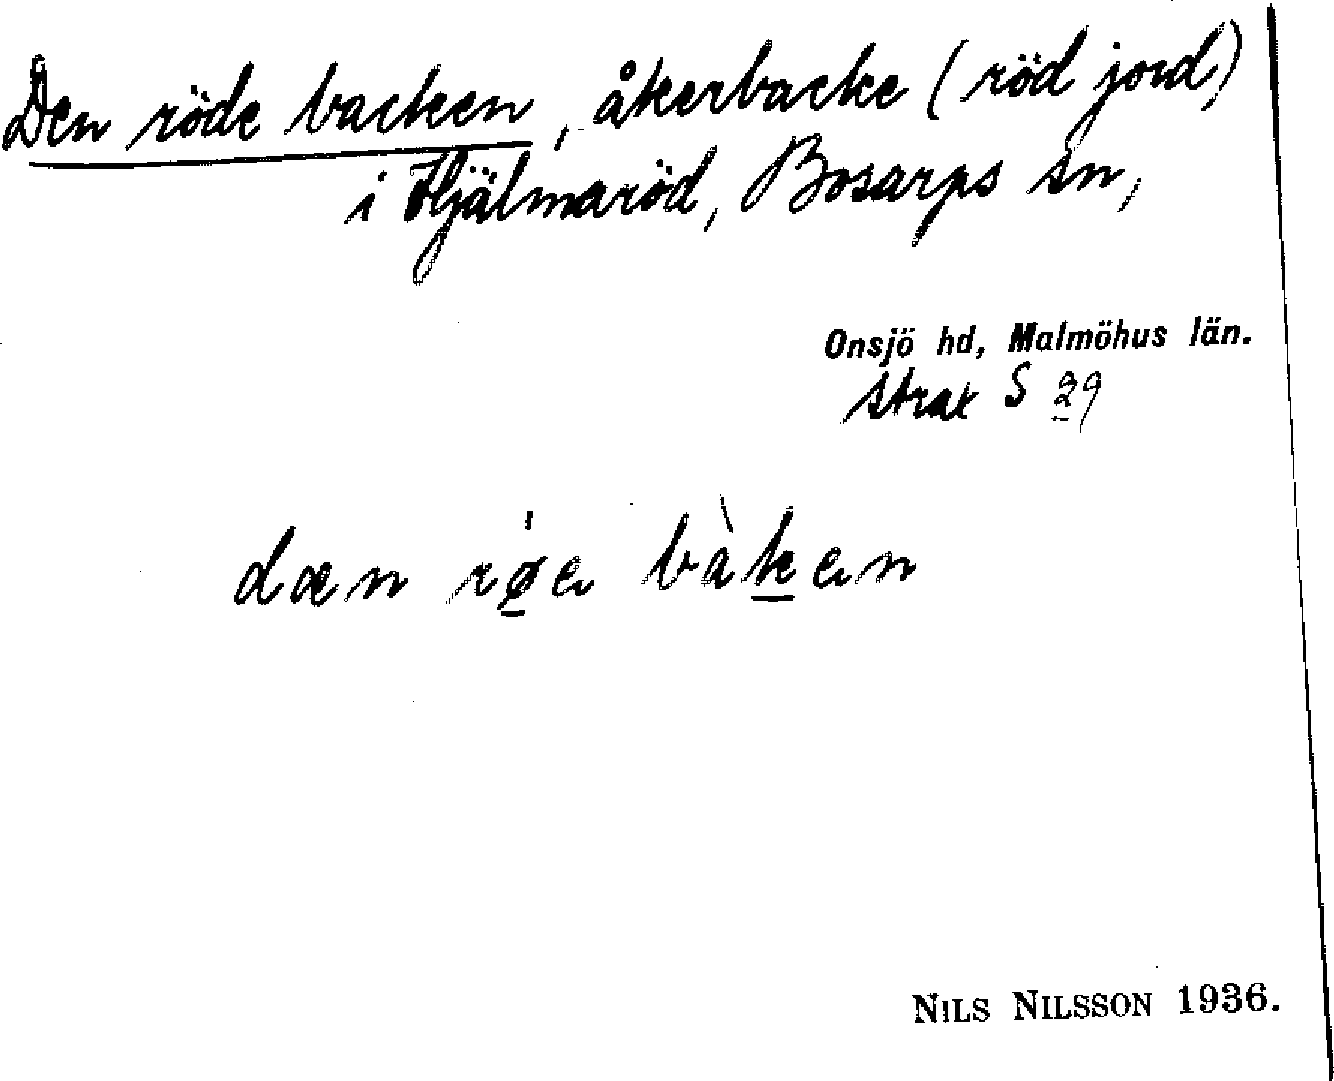 Den röde backen, åkerbacke (röd jord)
i Hjälmaröd, Bosarps sn,
Onsjö hd, Malmöhus län.
strax S 29
dæn rǿ̱ea bàḵean
NILS NILSSON 1936.